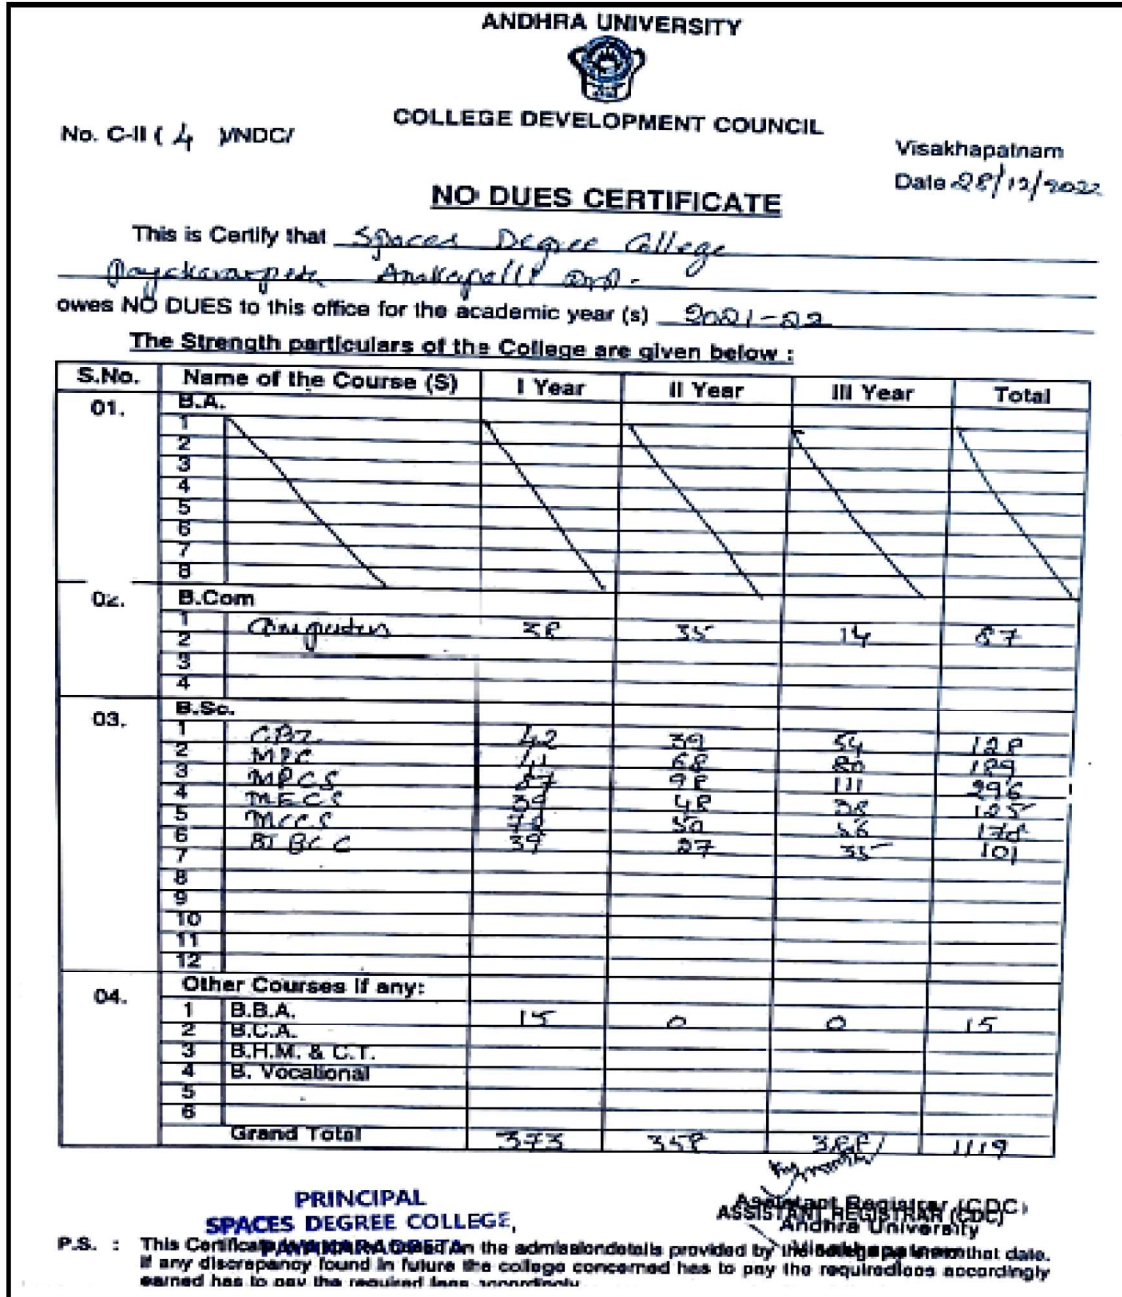 ANDHRA UNIVERSITY
COLLEGE DEVELOPMENT COUNCIL
No. C-II ( 4 )/NDC/
Visakhapatnam
Date 28/12/2022
NO DUES CERTIFICATE
This is Certify that Spaces Degree College
Anakapalli
owes NO DUES to this office for the academic year (s) 2021-22
The Strength particulars of the College are given below :
S.No. Name of the Course (S) I Year II Year III Year Total
01. B.A.
1
2
3
4
5
6
7
8
02. B.Com
1 Computers 38 35 14 87
2
3
4
03. B.Sc.
1 CBZ 42 39
2 MPC 68 80 189
3 MPCS 87 98 111 296
4 MECS 39 48 38 125
5 MCCS 50 56
6 39 27 35 101
7
8
9
10
11
12
04. Other Courses if any:
1 B.B.A. 15 0 0 15
2 B.C.A.
3 B.H.M. & C.T.
4 B. Vocational
5
6
Grand Total 373 358 388 1119
PRINCIPAL
SPACES DEGREE COLLEGE,
PAYAKARAOPETA
Assistant Registrar (CDC)
ASSISTANT REGISTRAR (CDC)
Andhra University
Visakhapatnam
P.S. : This Certificate on the admissiondetails provided by the that date.
If any discrepancy found in future the college concerned has to pay the required accordingly
earned has to pay the required fees accordingly